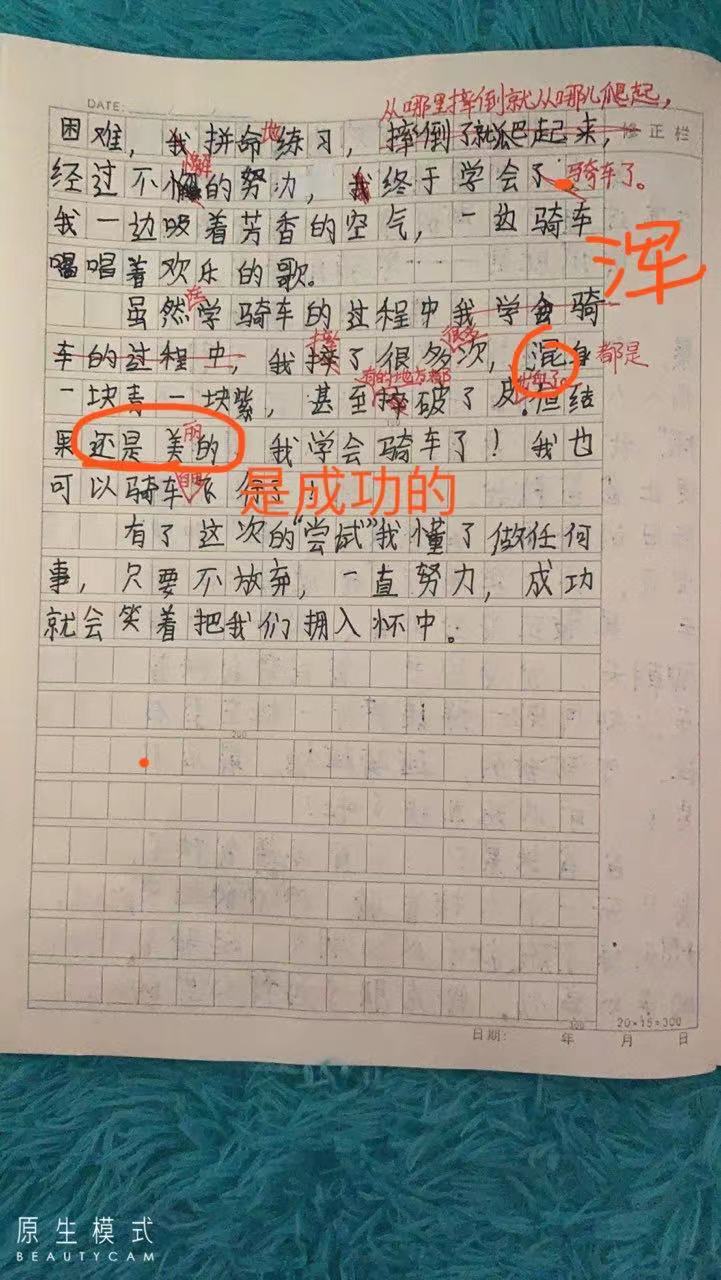 DATE:
从哪里摔倒就从哪儿爬起，
困难，我拼命地练习，摔倒了就爬起来，
修正栏
经过不懈的努力，我终于学会了骑车了。
我一边吸着芳香的空气，一边骑车
唱唱着欢乐的歌。
浑
虽然学骑车的过程中我学会骑
车的过程中，我摔了很多次，混身都是
有的地方都
一块青一块紫，甚至摔破了皮，但结
果还是美丽的，我学会骑车了！我也
可以骑车
是成功的
有了这次的“尝试”我懂了做任何
事，只要不放弃，一直努力，成功
就会笑着把我们拥入怀中。
200
300
20×15=300
日期： 年 月 日
原生模式
BEAUTYCAM